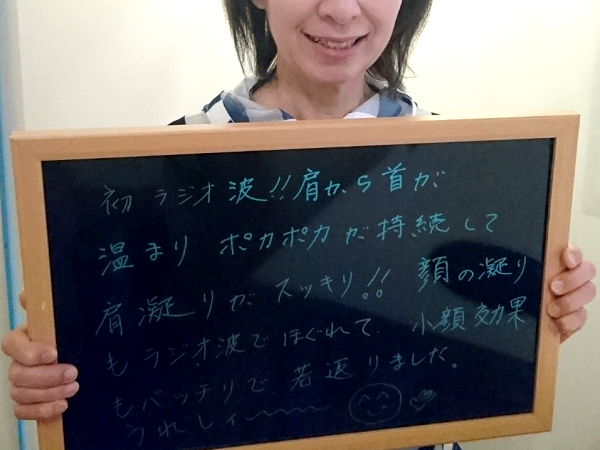 初ラジオ波!!肩から首が
温まり ポカポカが持続して
肩凝りがスッキリ!! 顔の凝り
もラジオ波でほぐれて、小顔効果
もバッチリで、若返りました。
うれしィ〜〜〜